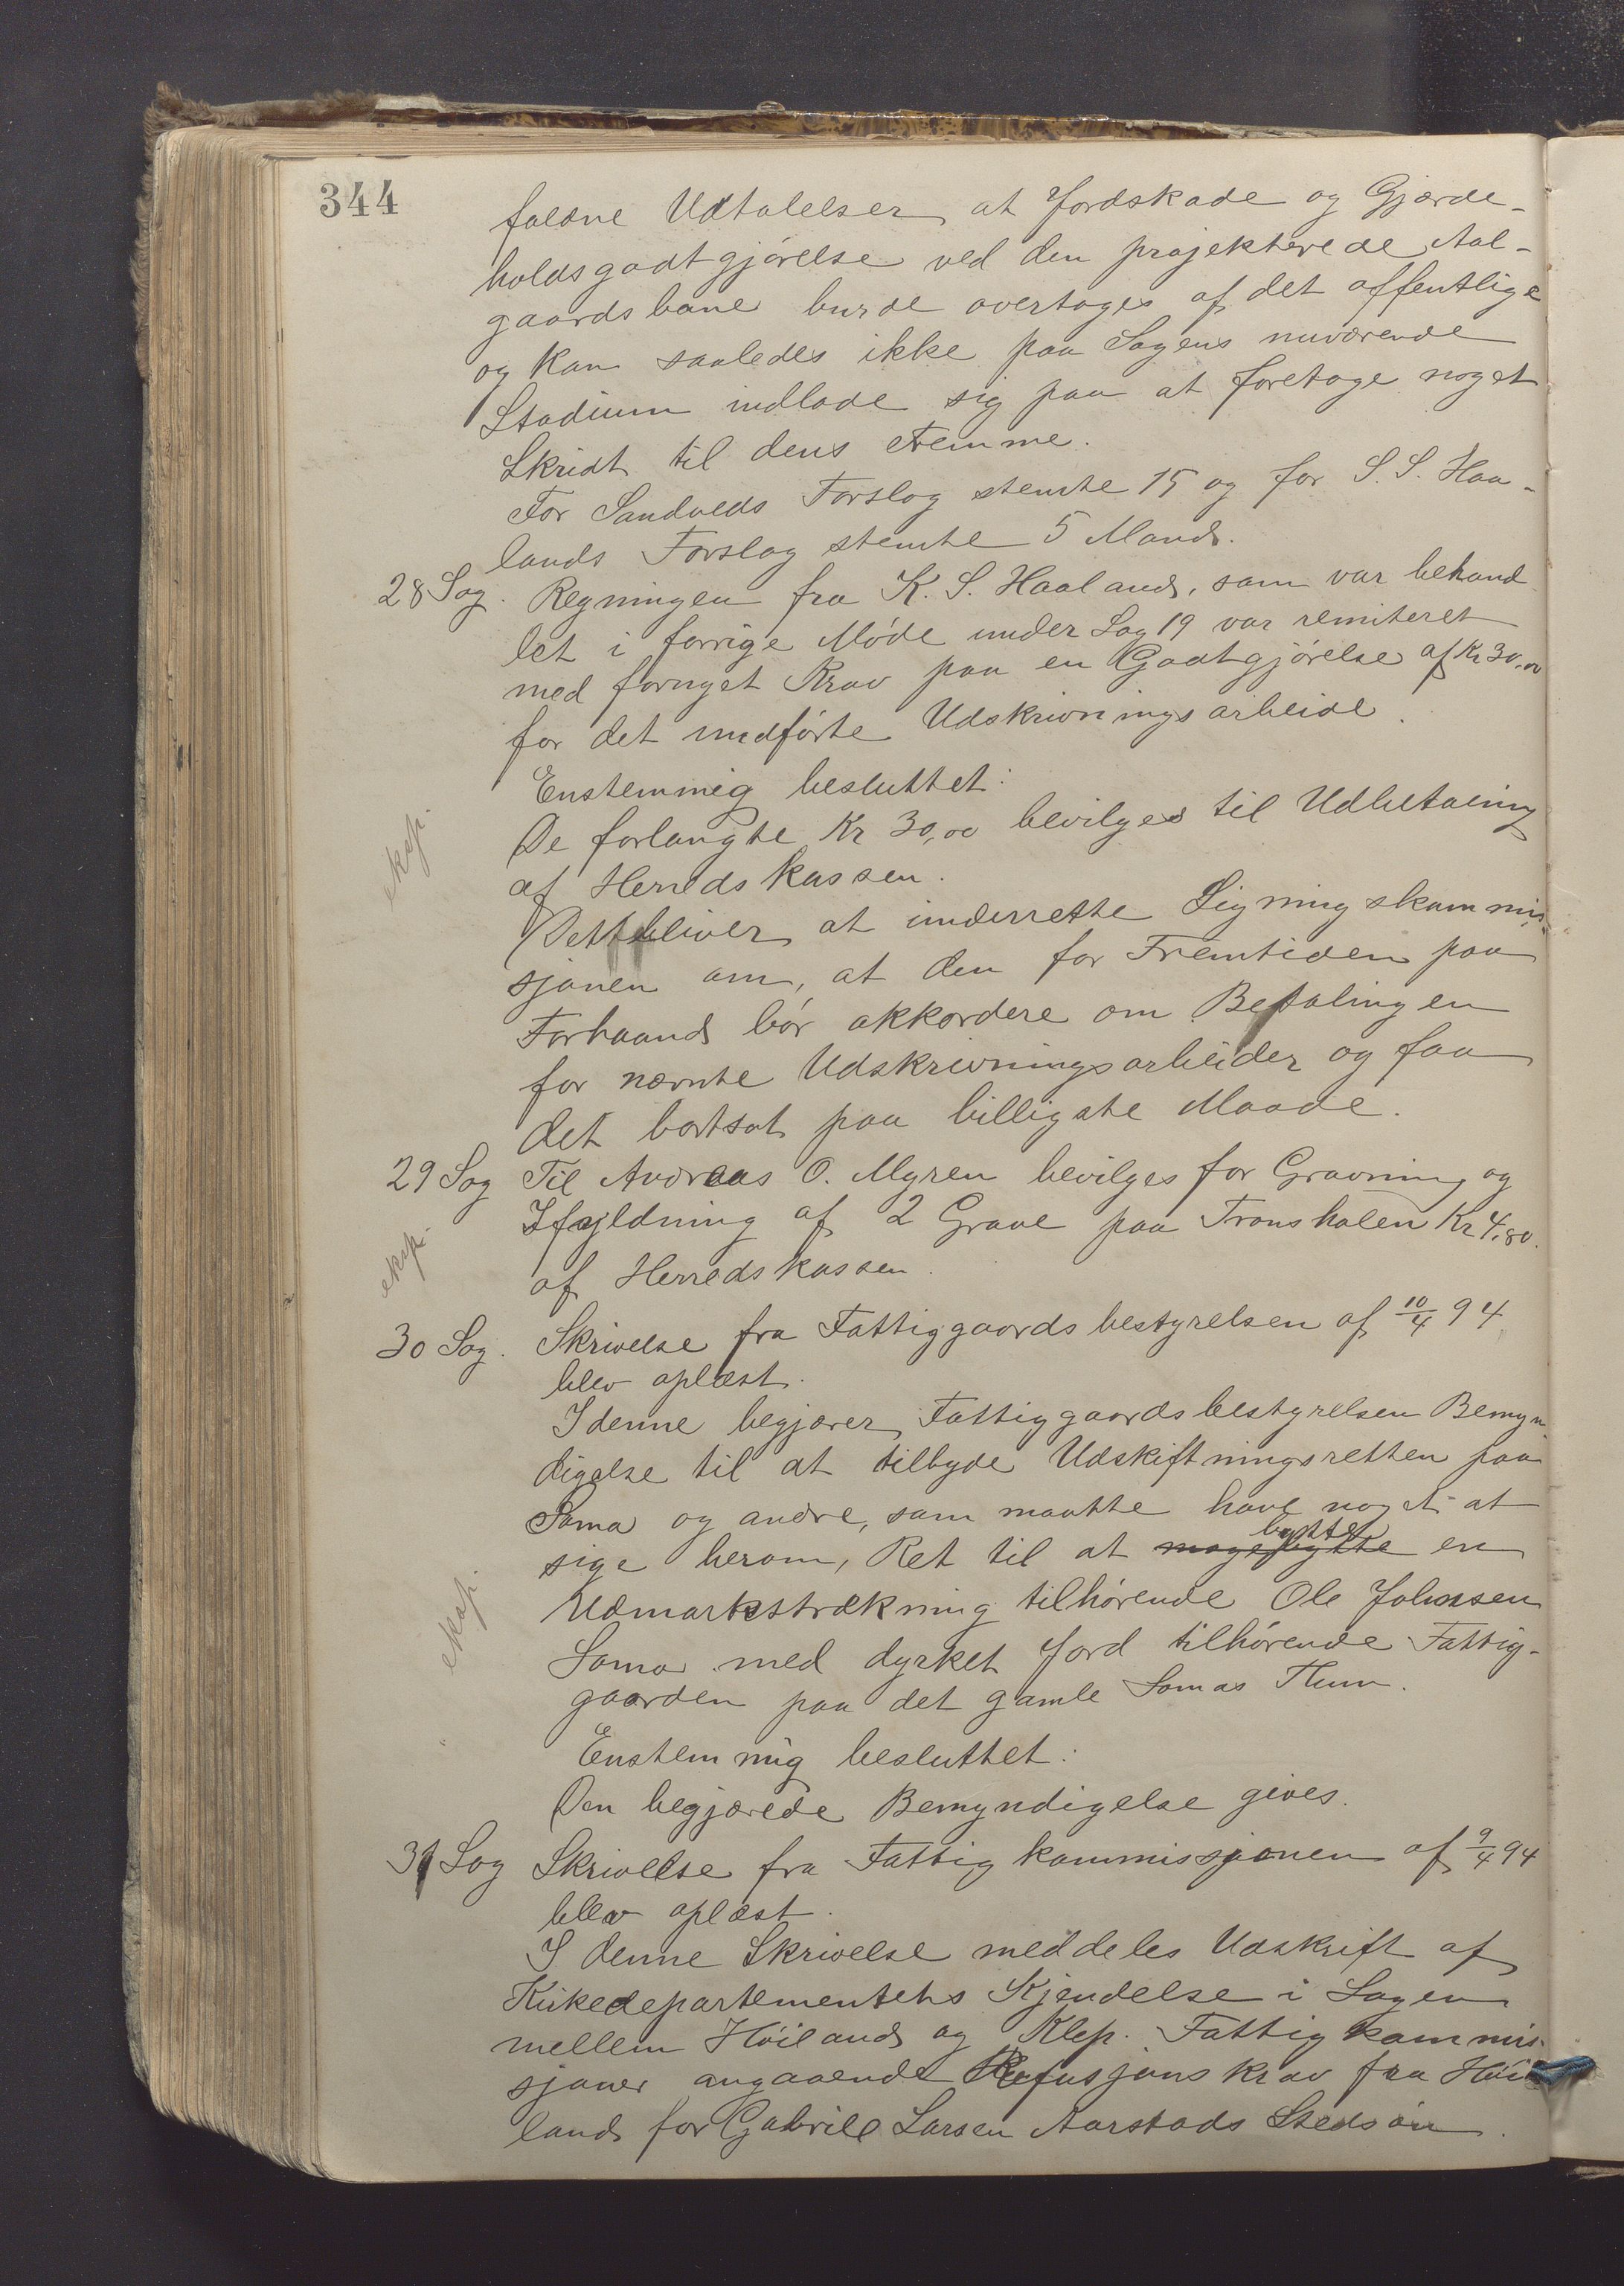 344
faldne Udtalelser, at Jordskade og Gjærde-
holdsgodtgjørelse ved den projekterede Aal-
gaardsbane burde overtages af det offentlige
og kan saaledes ikke paa Sagens nuværende
Stadium indlade sig paa at foretage noget
Skridt til dens Fremme.
For Sandveds Forslag stemte 15 og for S. S. Haa-
lands Forslag stemte 5 Mand.
28 Sag. Regningen fra K. S. Haaland, som var behand
let i forrige Møde under Sag 19 var remiteret
med fornyet Krav paa en Godtgjørelse af Kr 30,00
for det indførte Udskrivningsarbeide.
Enstemmig besluttet:
De forlangte Kr 30,00 bevilges til Udbetaling
eksp.
af Herredskassen.
Dett bliver at underrette Ligningskommis-
sjonen om, at den for Fremtiden paa
Forhaand bør akkordere om Betalingen
for nævnte Udskrivningsarbeider og faa
det bortsat paa billigste Maade.
29 Sag Til Andreas O. Myren bevilges for Gravning og
Ifyldning af 2 Grave paa Tronsholen Kr 4,80.
eksp.
af Herredskassen.
30 Sag. Skrivelse fra Fattiggaardsbestyrelsen af 10/4 94
blev oplæst.
I denne begjærer Fattiggaardsbestyrelsen Bemyn
digelse til at tilbyde Udskiftningsretten paa
Soma og andre, som maatte have noget at
sige herom, Ret til at magebytte bytte en
Udmarksstrækning tilhørende Ole Johnsen
eksp.
Soma med dyrket Jord tilhørende Fattig-
gaarden paa det gamle Somas Thun.
Enstemmig besluttet:
Den begjærede Bemyndigelse gives.
31 Sag Skrivelse fra Fattigkommissjonen af 9/4 94
blev oplæst.
I denne Skrivelse meddeles Udskrift af
Kirkedepartementets Kjendelse i Sagen
mellem Høiland og Klep. Fattigkommis-
sjoner angaaende Refusjonskrav fra Høi
land for Gabriel Larsen Aarstads Stedsøn.